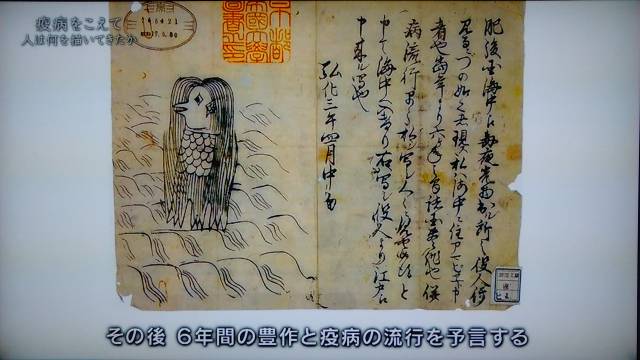 疫病をこえて
人は何を描いてきたか
164421
京都
帝國大學
圖書之印
肥後国海中江毎夜光物出ル所之役人行
見るニづの如之者現ス私ハ海中ニ住アマビヱト申
者也当年より六ヶ年之間諸国豊作也併
病流行早々私シ写シ人々ニ見セ候得と
申て海中へ入けり右ハ写シ役人より江戸江
申来ル写也
弘化三年四月中旬
その後 6年間の豊作と疫病の流行を予言する